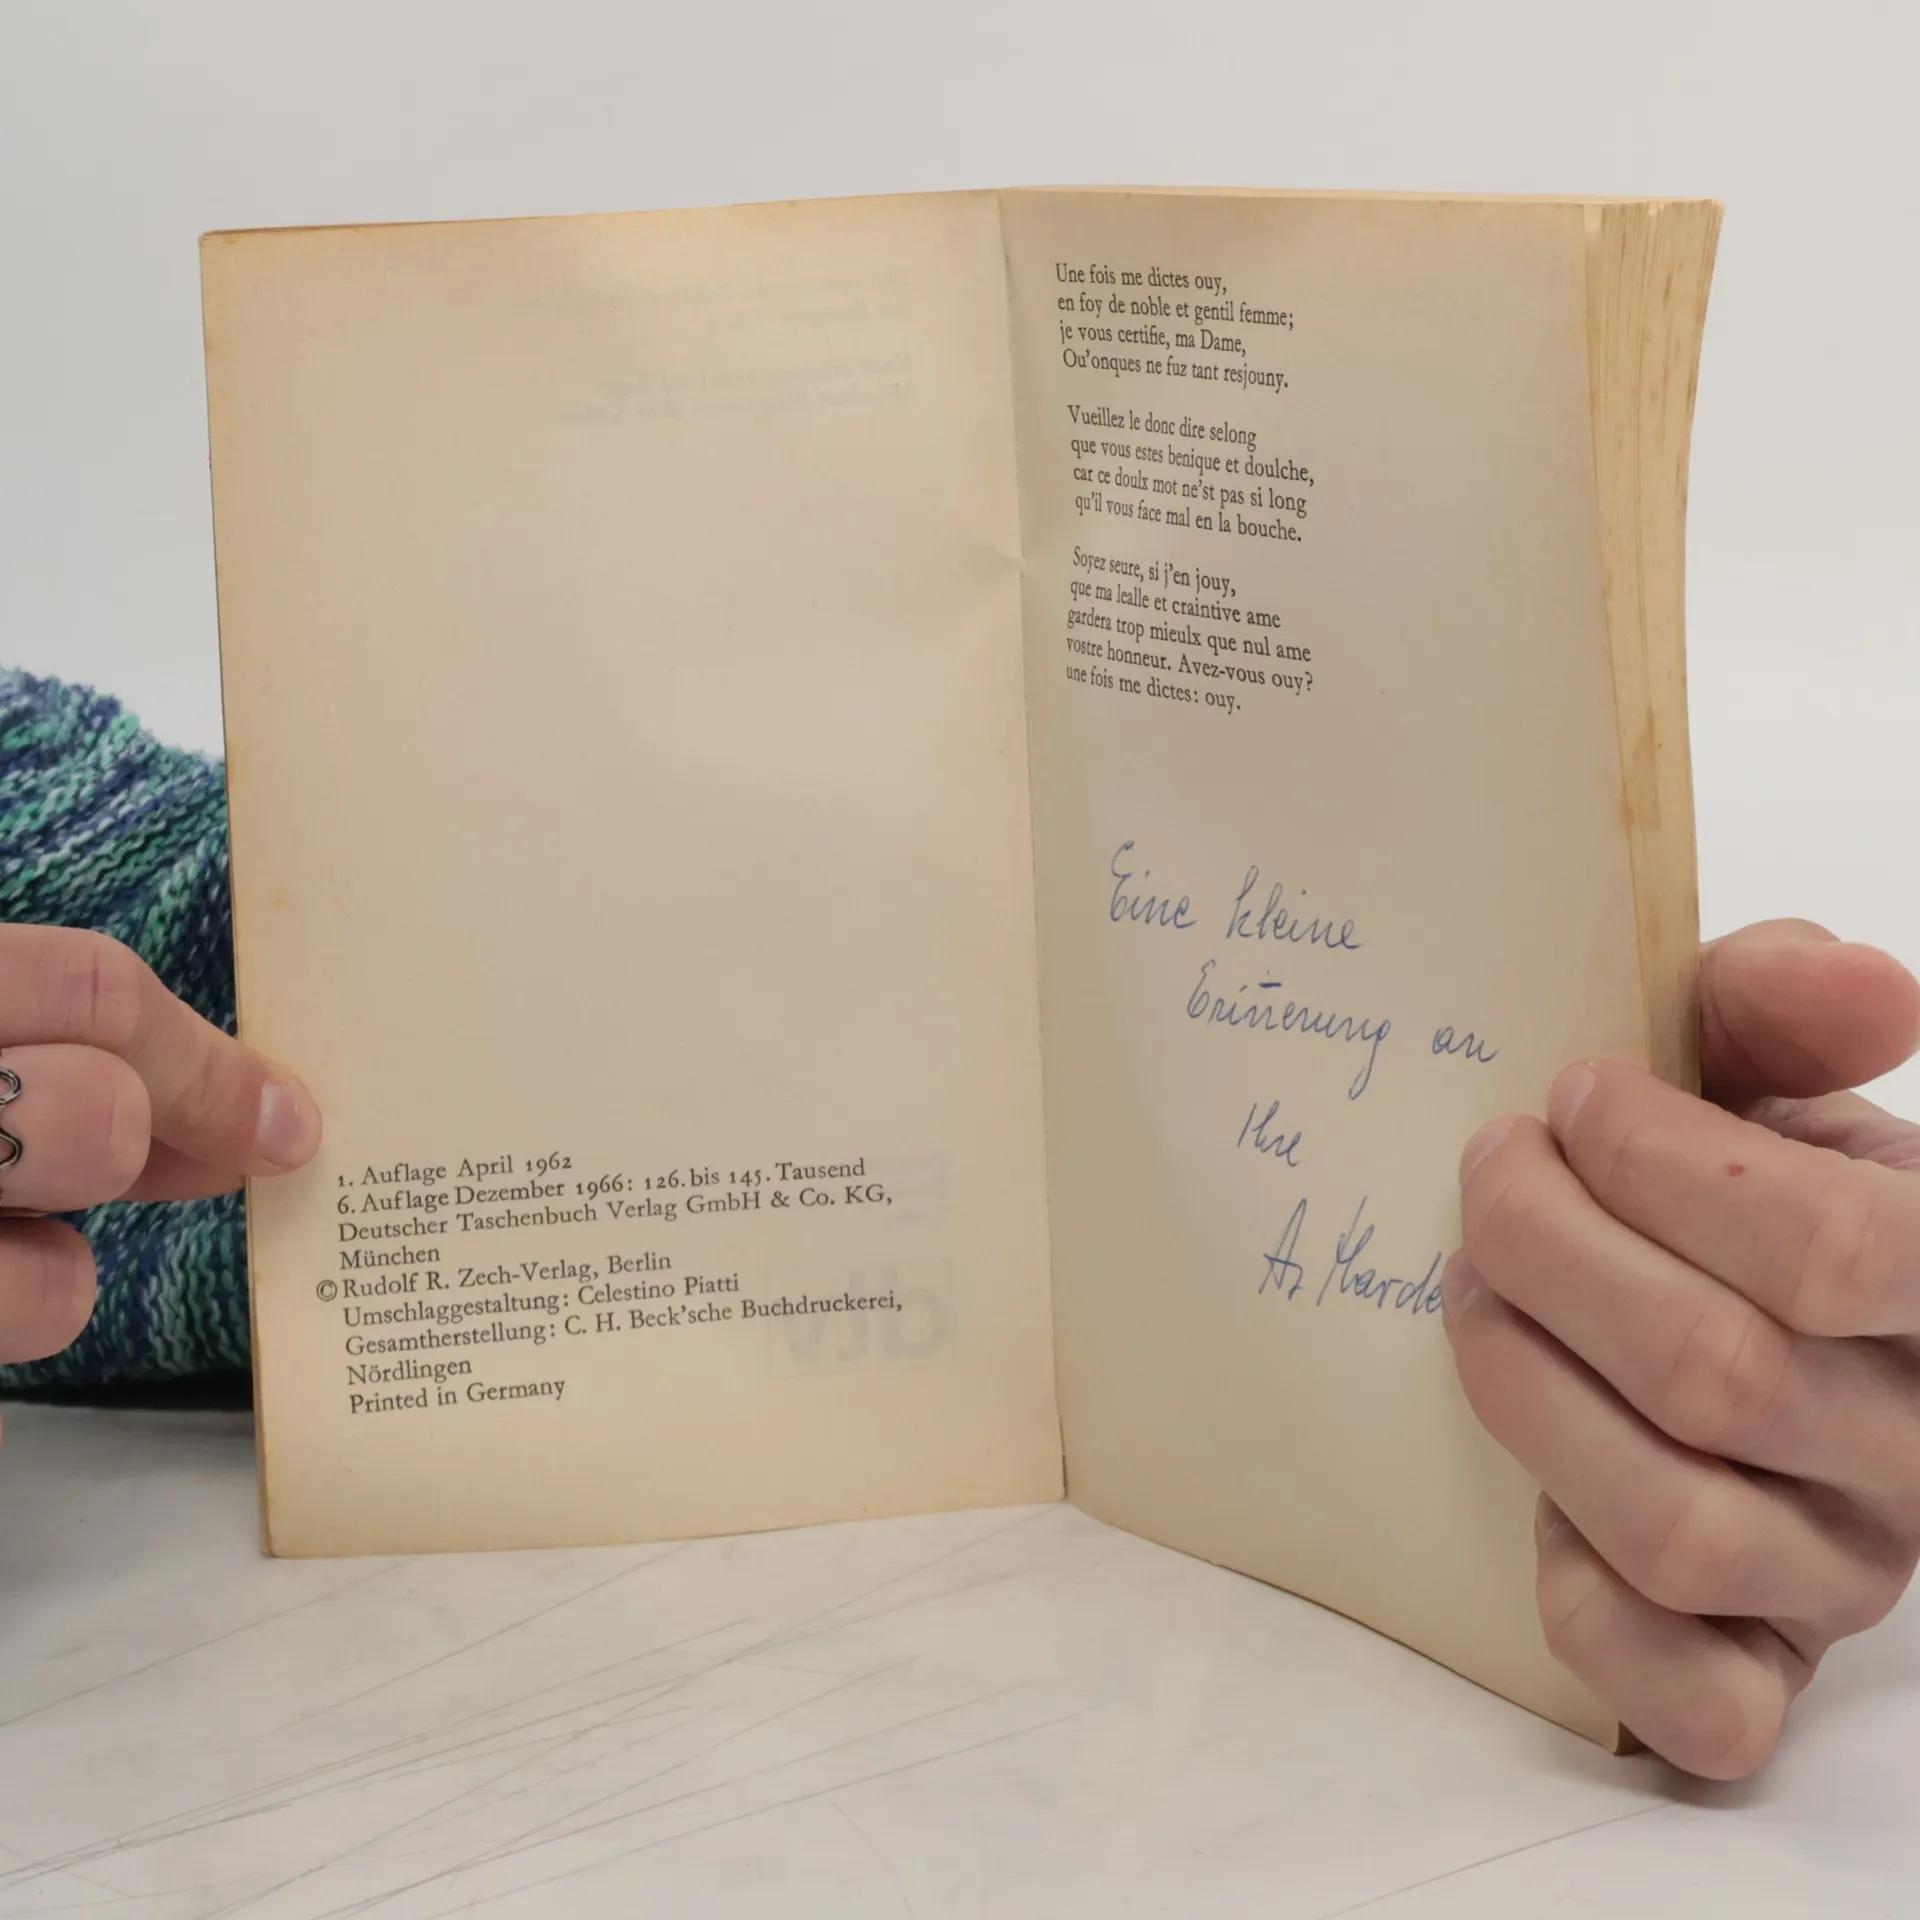 1. Auflage April 1962
6. Auflage Dezember 1966: 126. bis 145. Tausend
Deutscher Taschenbuch Verlag GmbH & Co. KG,
München
© Rudolf R. Zech-Verlag, Berlin
Umschlaggestaltung: Celestino Piatti
Gesamtherstellung: C. H. Beck'sche Buchdruckerei,
Nördlingen
Printed in Germany
Une fois me dictes ouy,
en foy de noble et gentil femme;
je vous certifie, ma Dame,
Qu'onques ne fuz tant resjouny.
Vueillez le donc dire selong
que vous estes benique et doulche,
car ce doulx mot ne'st pas si long
qu'il vous face mal en la bouche.
Soyez seure, si j'en jouy,
que ma lealle et craintive ame
gardera trop mieulx que nul ame
vostre honneur. Avez-vous ouy?
une fois me dictes: ouy.
Eine kleine
Erin̄erung an
Ihre